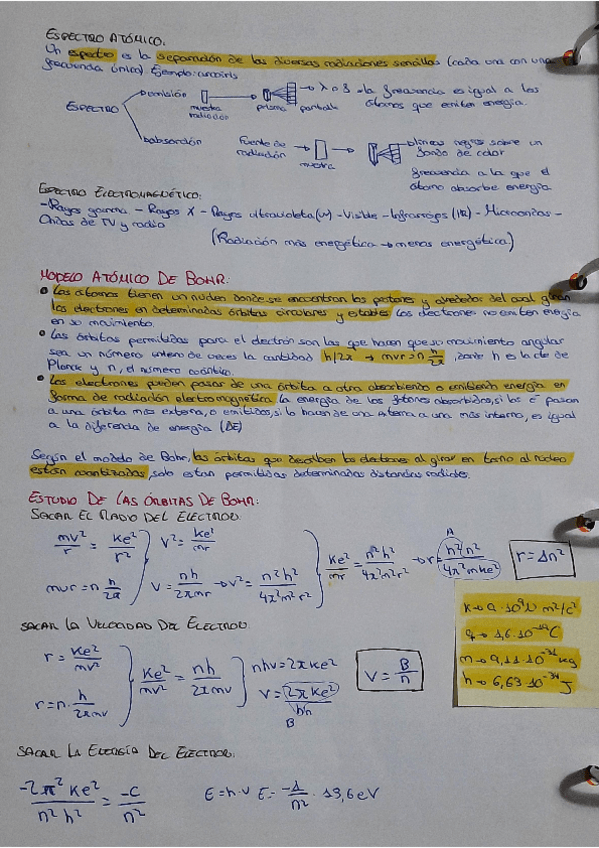 ESPECTRO ATÓMICO.
Un espectro es la separación de las diversas radiaciones sencillas (cada una con una
frecuencia única) Ejemplo: arcoiris
emisión → λ o f → la frecuencia es igual a los
átomos que emiten energía.
muestra radiación prisma pantalla
ESPECTRO
absorción
fuente de radiación → muestra → líneas negras sobre un
fondo de color
frecuencia a la que el
átomo absorbe energía
ESPECTRO ELECTROMAGNÉTICO:
-Rayos gamma - Rayos X - Rayos ultravioleta (UV) - Visible - Infrarrojos (IR) - Microondas -
Ondas de TV y radio
(Radiación más energética → menos energética)
MODELO ATÓMICO DE BOHR:
• Los átomos tienen un núcleo donde se encuentran los protones y alrededor del cual giran
los electrones en determinadas órbitas circulares y estables. Los electrones no emiten energía
en su movimiento.
• Las órbitas permitidas para el electrón son las que hacen que su movimiento angular
sea un número entero de veces la cantidad h/2π → mvr = n h/2π, donde h es la cte de
Planck y n, el número cuántico.
• Los electrones pueden pasar de una órbita a otra absorbiendo o emitiendo energía en
forma de radiación electromagnética. La energía de los fotones absorbidos, si los e⁻ pasan
a una órbita más externa, o emitidos, si lo hacen de una externa a una más interna, es igual
a la diferencia de energía (ΔE)
Según el modelo de Bohr, las órbitas que describen los electrones al girar en torno al núcleo
están cuantizadas, solo estan permitidas determinadas distancias radiales.
ESTUDIO DE LAS ÓRBITAS DE BOHR:
SACAR EL RADIO DEL ELECTRÓN.
mv²/r = Ke²/r² } v² = Ke²/mr
mvr = n h/2π } v = nh/2πmr → v² = n²h²/4π²m²r² } Ke²/mr = n²h²/4π²m²r² → r = h²n²/4π²mKe² A r = An²
K → 9·10⁹ N m²/C²
q → 1,6·10⁻¹⁹ C
m → 9,11·10⁻³¹ kg
h → 6,63·10⁻³⁴ J
SACAR LA VELOCIDAD DEL ELECTRÓN.
r = Ke²/mv²
r = n· h/2πmv } Ke²/mv² = nh/2πmv } nhv = 2πKe²
v = 2πKe²/hn B v = B/n
SACAR LA ENERGÍA DEL ELECTRÓN.
-2π²Ke²/n²h² = -C/n² E = h·ν E = -1/n² · 13,6 eV